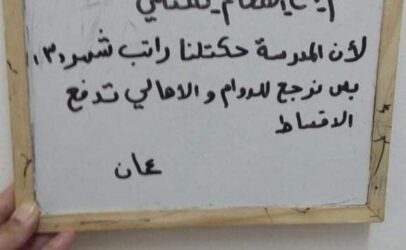 لأن المدرسة حكتلنا راتب شهر (٣)
بس نرجع للدوام و الاهالي تدفع
الاقساط
عمان